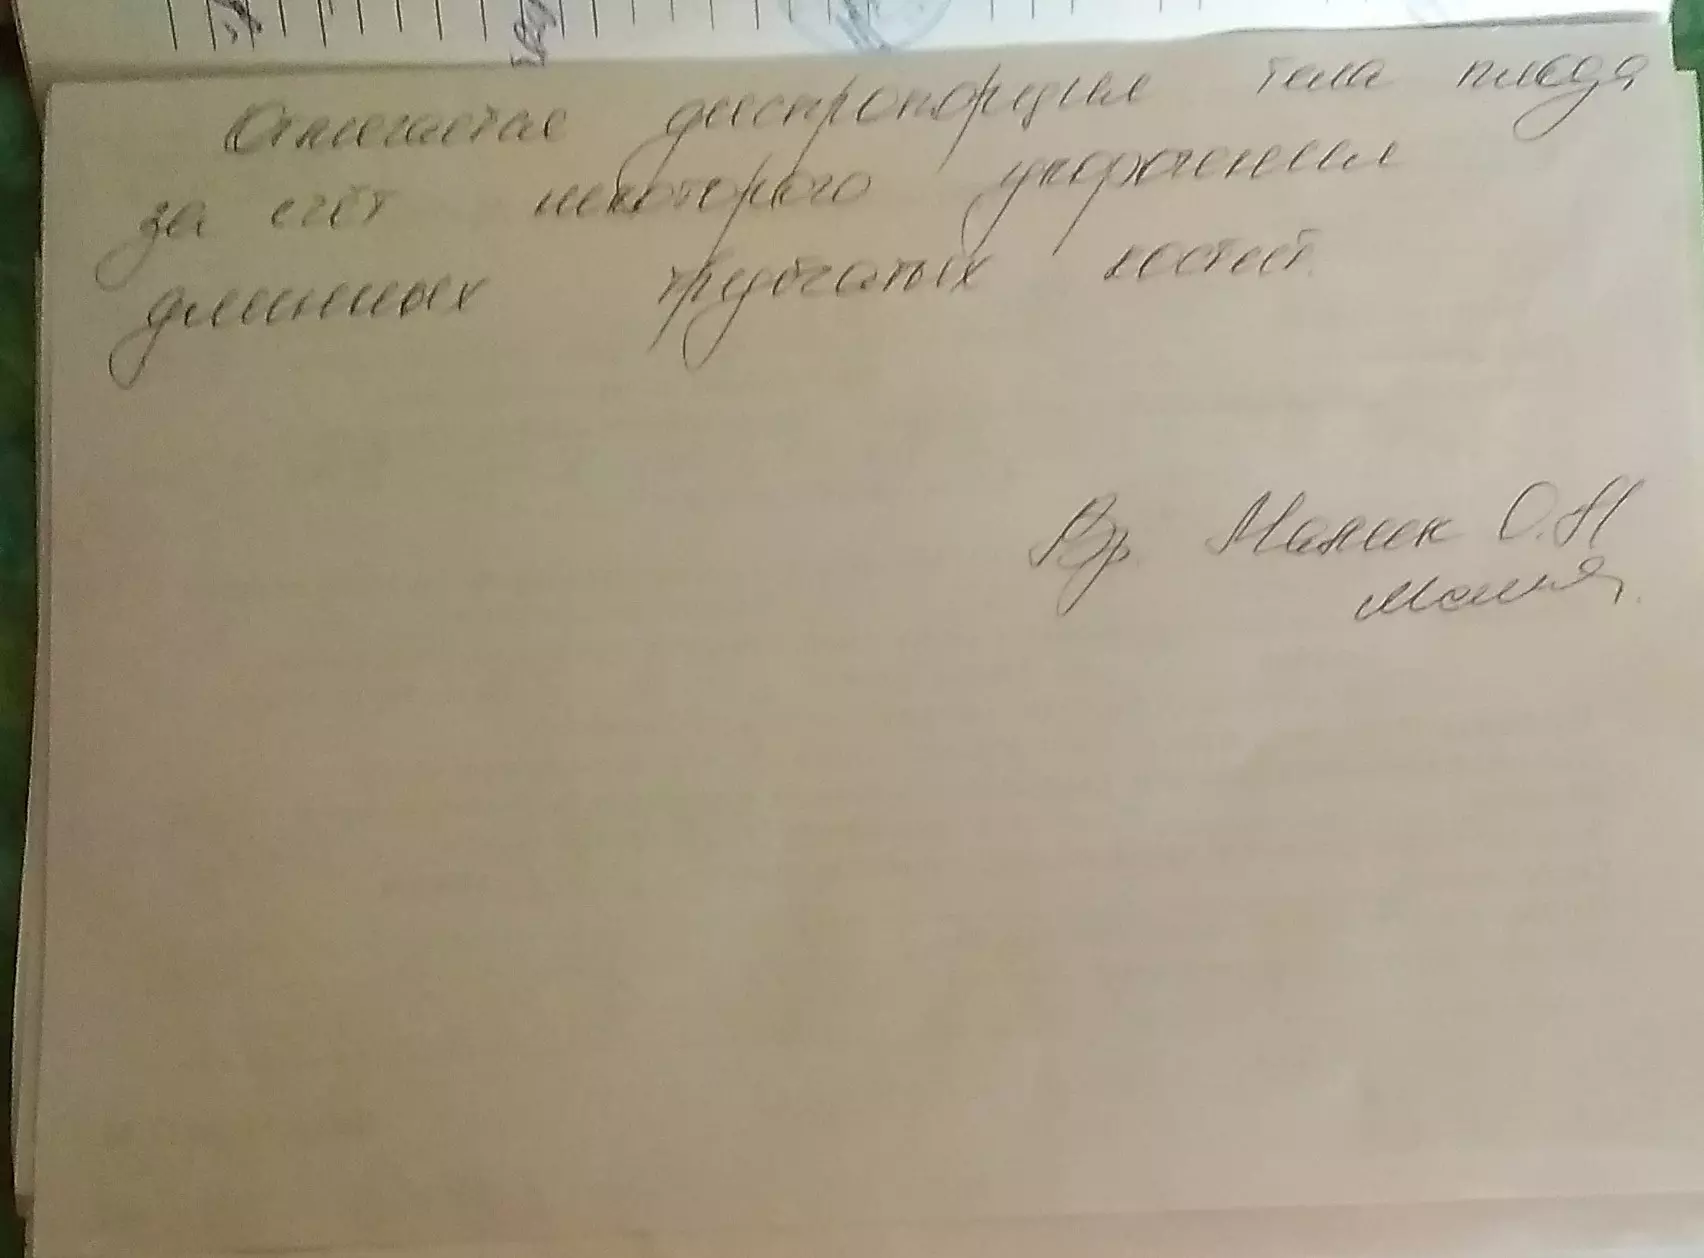 Отмечается диспропорция тела плода
за счёт некоторого укорочения
длинных трубчатых костей.
Вр. Малик О.Н